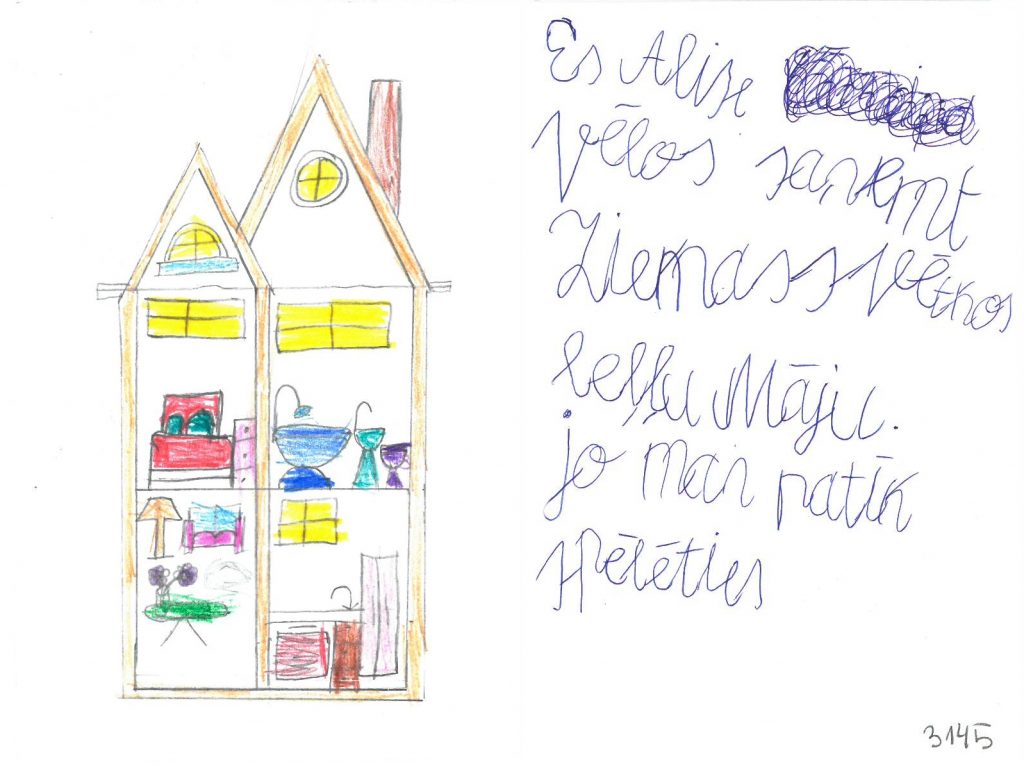 Es Alise
vēlos saņemt
Ziemassvētkos
leļļu Māju.
jo man patīk
spēlēties
3145